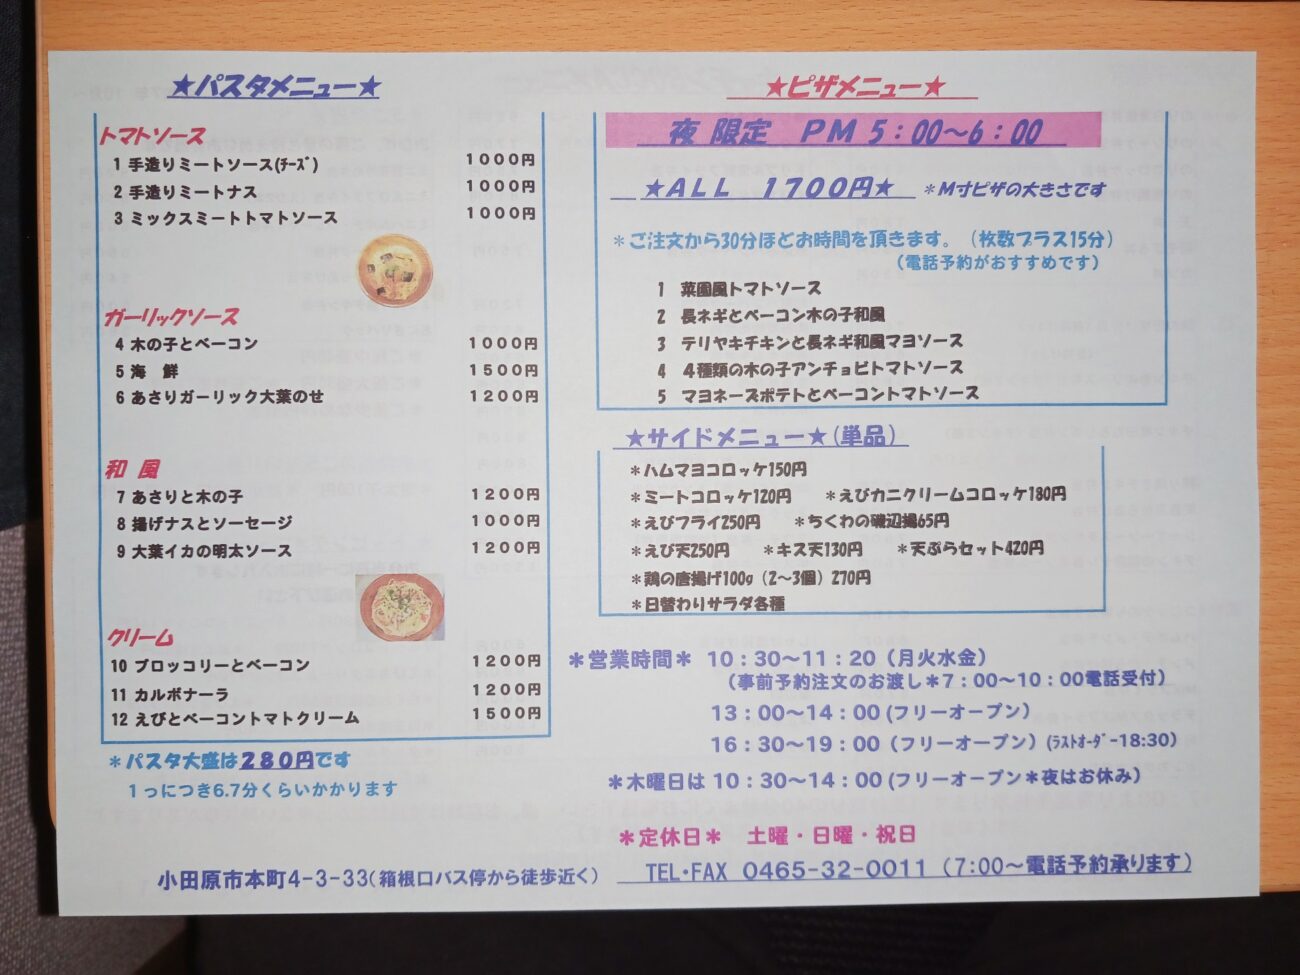 ★パスタメニュー★
トマトソース
1 手造りミートソース(ﾁｰｽﾞ) 1000円
2 手造りミートナス 1000円
3 ミックスミートトマトソース 1000円
ガーリックソース
4 木の子とベーコン 1000円
5 海　鮮 1500円
6 あさりガーリック大葉のせ 1200円
和 風
7 あさりと木の子 1200円
8 揚げナスとソーセージ 1000円
9 大葉イカの明太ソース 1200円
クリーム
10 ブロッコリーとベーコン 1200円
11 カルボナーラ 1200円
12 えびとベーコントマトクリーム 1500円
＊パスタ大盛は280円です
1っにつき6.7分くらいかかります
★ピザメニュー★
夜 限定　PM 5：00～6：00
★ALL　1700円★　＊M寸ピザの大きさです
＊ご注文から30分ほどお時間を頂きます。（枚数プラス15分）
（電話予約がおすすめです）
1　菜園風トマトソース
2　長ネギとベーコン木の子和風
3　テリヤキチキンと長ネギ和風マヨソース
4　4種類の木の子アンチョビトマトソース
5　マヨネーズポテトとベーコントマトソース
★サイドメニュー★(単品)
＊ハムマヨコロッケ150円
＊ミートコロッケ120円　＊えびカニクリームコロッケ180円
＊えびフライ250円　＊ちくわの磯辺揚65円
＊えび天250円　＊キス天130円　＊天ぷらセット420円
＊鶏の唐揚げ100g（2～3個）270円
＊日替わりサラダ各種
＊営業時間＊ 10：30～11：20（月火水金）
（事前予約注文のお渡し＊7：00～10：00電話受付）
13：00～14：00(フリーオープン）
16：30～19：00（フリーオープン）(ﾗｽﾄｵｰﾀﾞｰ18:30)
＊木曜日は 10：30～14：00(フリーオープン＊夜はお休み）
＊定休日＊　土曜・日曜・祝日
小田原市本町4-3-33(箱根口バス停から徒歩近く）　TEL・FAX 0465-32-0011（7:00～電話予約承ります）